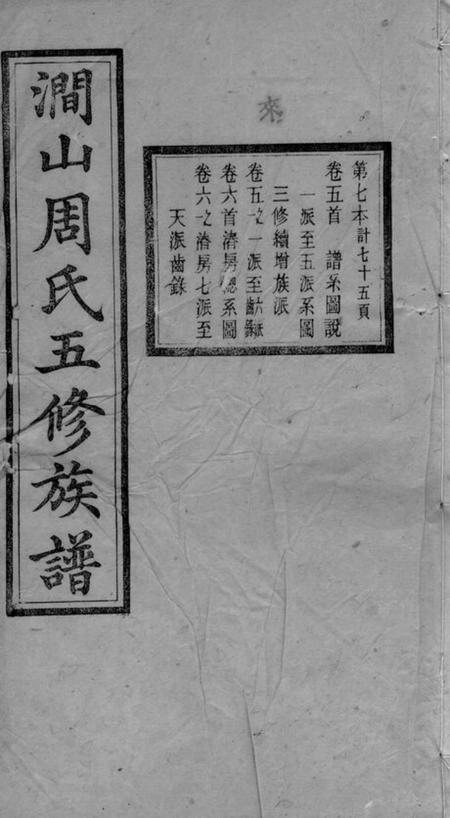 來
第七本計七十五頁
卷五首 譜系圖說
一派至五派系圖
三修續增族派
卷五之一派至六派齒錄
卷六首濟房總系圖
卷六之濟房七派至
天派齒錄
澗山周氏五修族譜